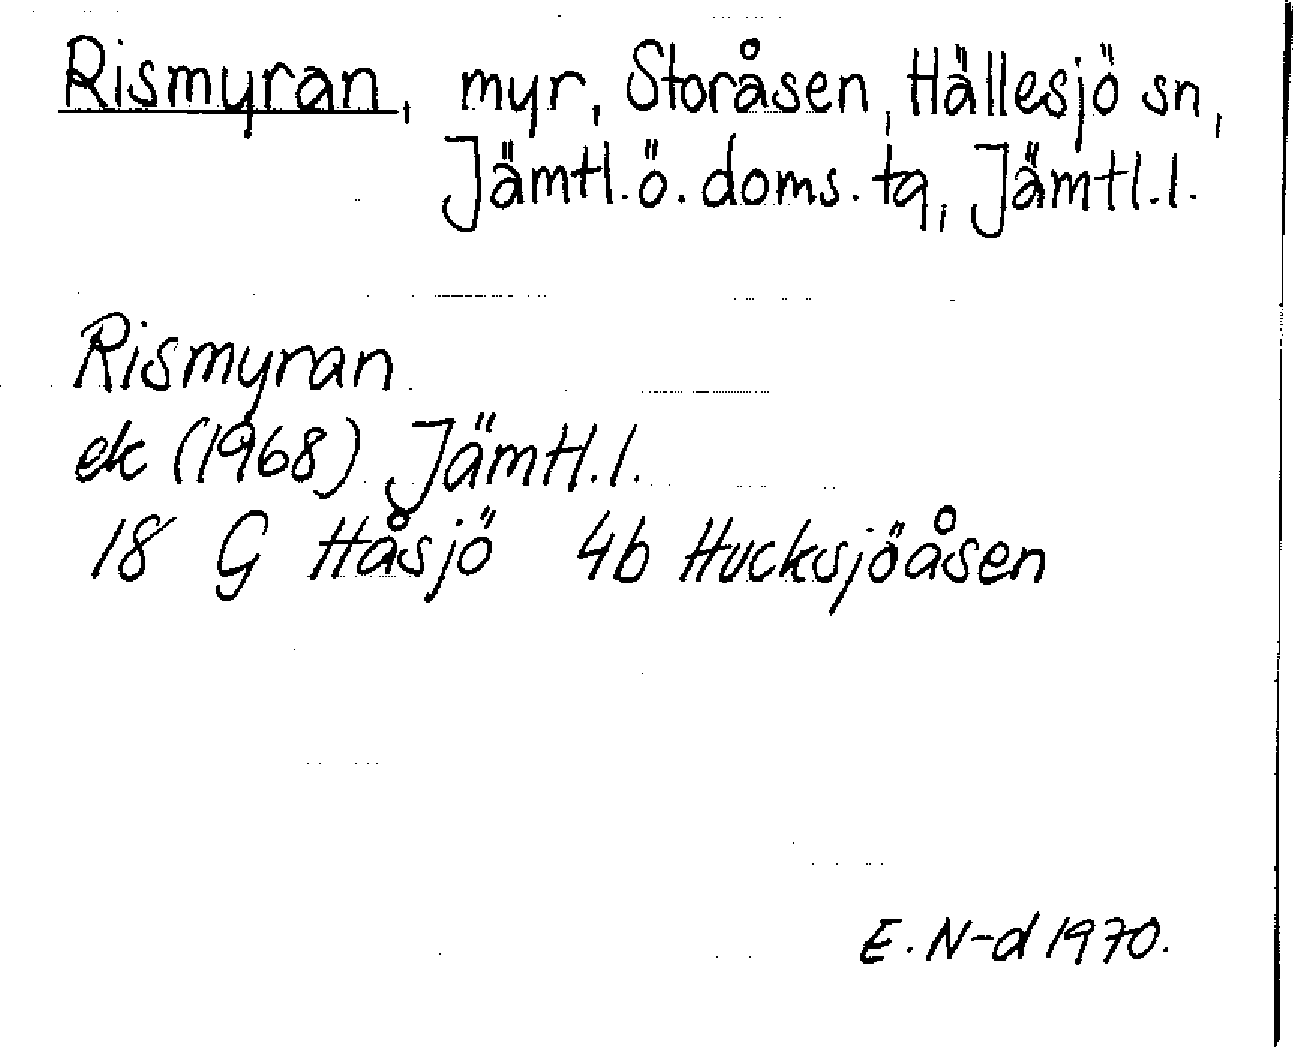 Rismyran, myr, Storåsen, Hällesjö sn,
Jämtl. ö. doms. tg, Jämtl. l.
Rismyran
ek (1968) Jämtl. l.
18 G Håsjö 4b Hucksjöåsen
E. N-d 1970.